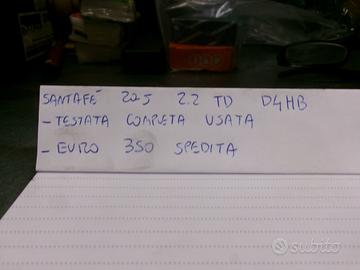 SANTAFÉ 2.2 TD D4HB
- TESTATA COMPLETA USATA
- EURO 350 SPEDITA
subito